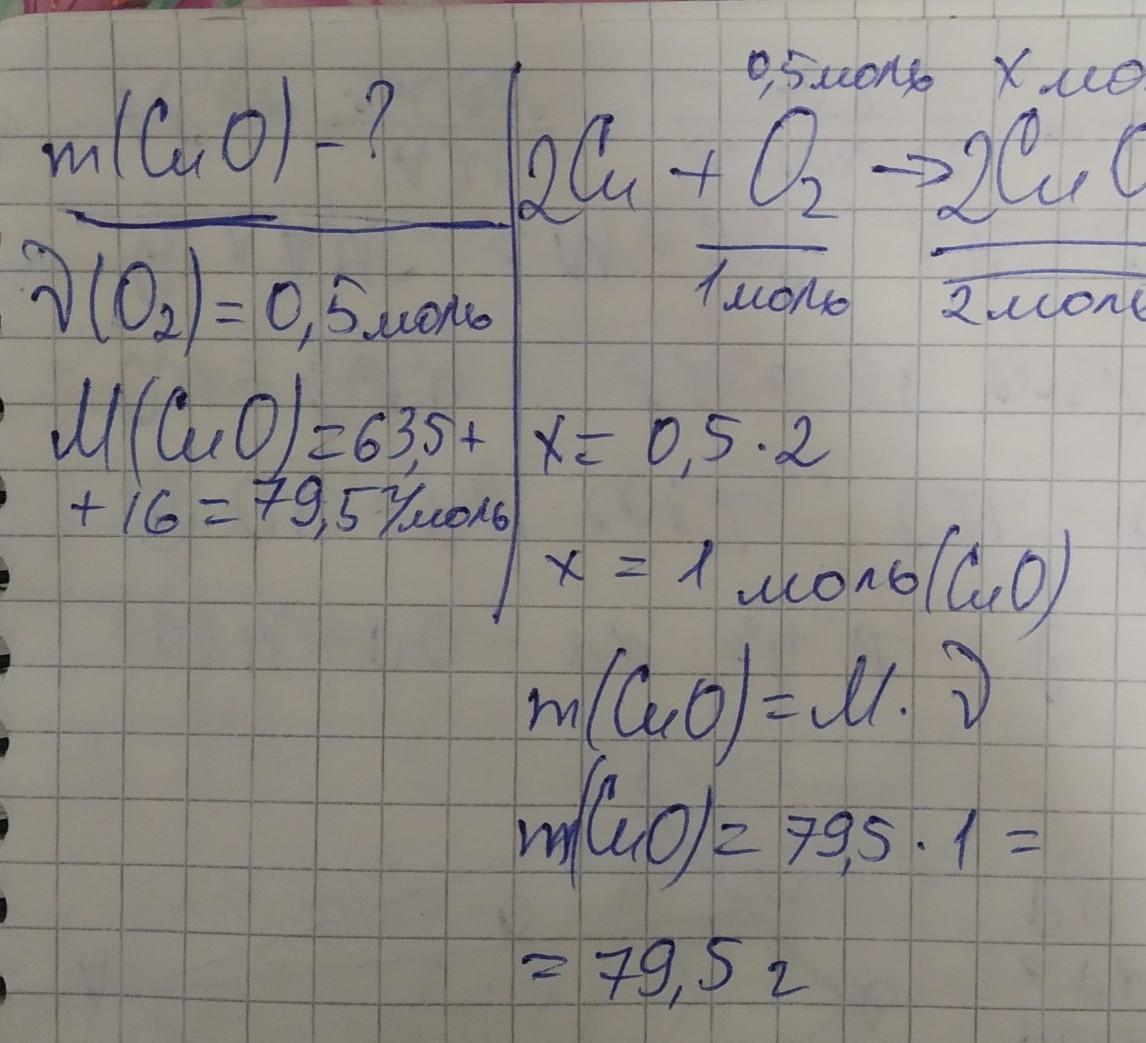 m(CuO) - ?
ν(O₂) = 0,5 моль
M(CuO) = 63,5 +
+ 16 = 79,5 г/моль
0,5 моль х мо
2Cu + O₂ → 2CuO
1 моль 2 моль
х = 0,5 · 2
х = 1 моль (CuO)
m(CuO) = M · ν
m(CuO) = 79,5 · 1 =
= 79,5 г